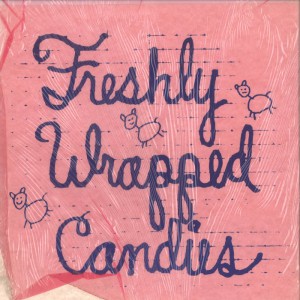 Freshly
Wrapped
Candies